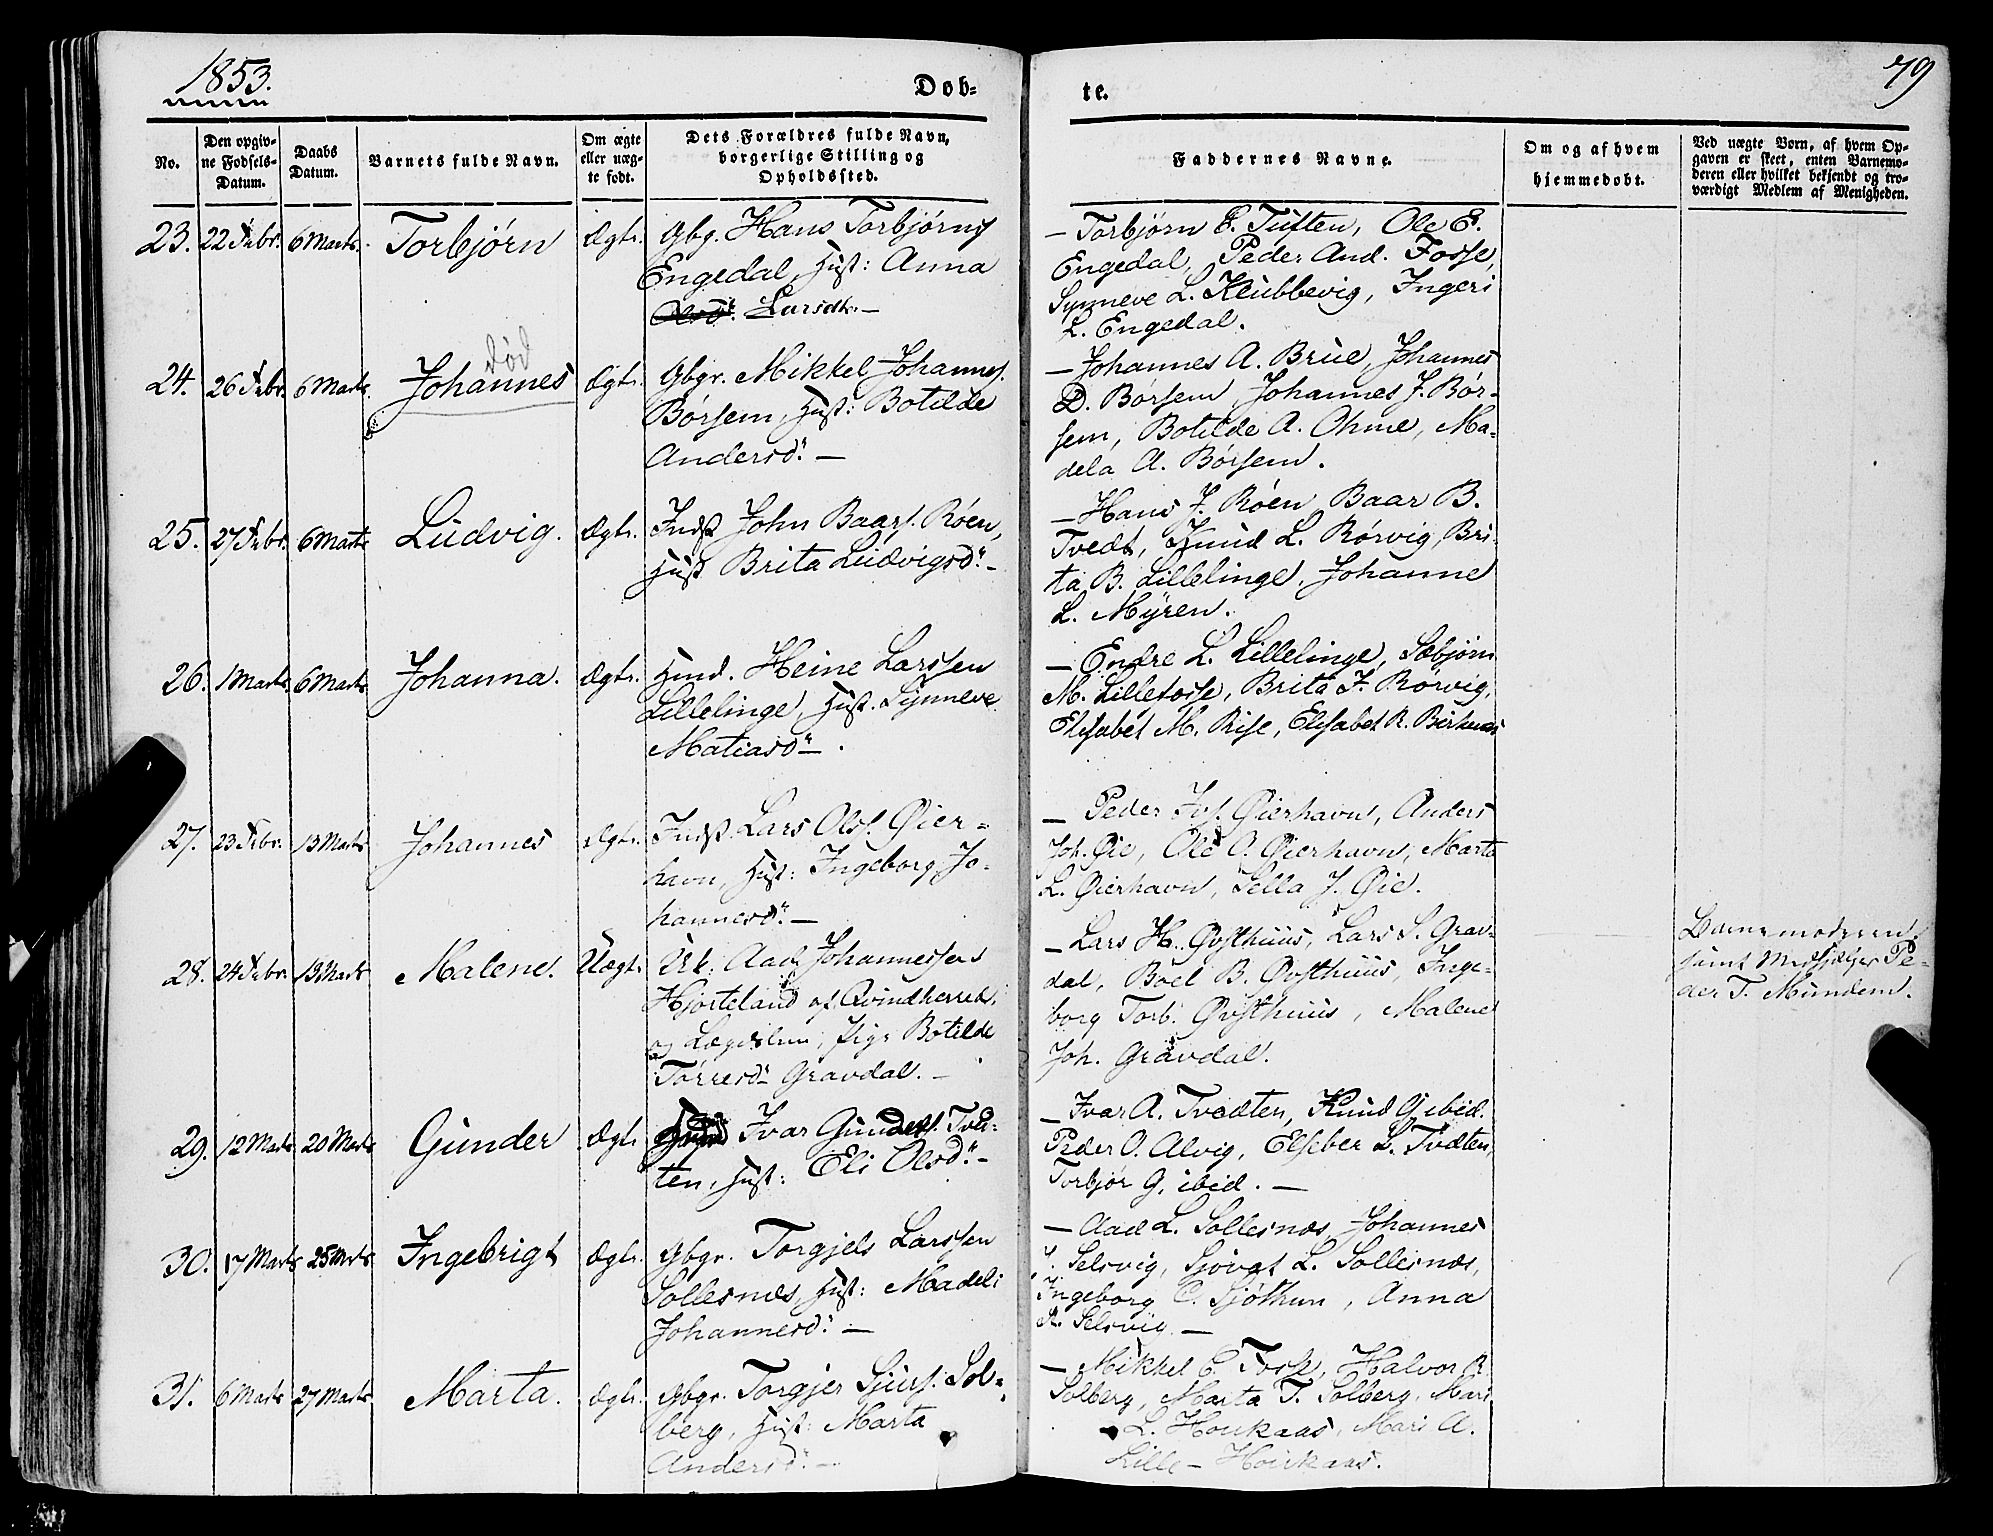 1853.
Døb-
te.
79
No.
Den opgiv-
ne Fødsels-
Datum.
Daabs
Datum.
Barnets fulde Navn.
Om ægte
eller uæg-
te født.
Dets Forældres fulde Navn,
borgerlige Stilling og
Opholdssted.
Faddernes Navne.
Om og af hvem
hjemmedøbt.
Ved uægte Børn, af hvem Op-
gaven er skeet, enten Barnemo-
deren eller hvilket bekjendt og tro-
værdigt Medlem af Menigheden.
23. 22 Febr. 6 Marts. Torbjørn Ægte. Gbg. Hans Torbjørns
Engedal, Hust: Anna
Olsd. Larsdtr. —
— Torbjørn E. Tuften, Ole E.
Engedal, Peder And. Fosse,
Synneve L. Klubbevig, Ingeri
L. Engedal.
død
24. 26 Febr. 6 Marts. Johannes Ægte. Gbgr. Mikkel Johannes.
Børsem, Hust: Botilde
Andersd. —
— Johannes A. Brue, Johannes
D. Børsem, Johannes J. Bør-
sem, Botilde A. Ohme, Ma-
dela A. Børsem.
25. 27 Febr. 6 Marts Ludvig. Ægte. Indst John Baars. Røen,
Hust Brita Ludvigsd. —
— Hans J. Røen, Baar B.
Tvedt, Knud L. Rørvig, Bri-
ta B. Lillelinge, Johanne
L. Myren.
26. 1 Marts. 6 Marts Johanna. Ægte. Huusd. Heine Larssen
Lillelinge, Hust. Synneve
Matiasd —.
— Endre L. Lillelinge, Sæbjørn
M. Lilletosse, Brita J. Rørvig,
Elisabet M. Rise, Elisabet R. Birkenes
27. 23 Febr. 13 Marts Johannes Ægte. Indst. Lars Ols. Øier-
havn, Hust: Ingeborg Jo-
hannesd. —
— Peder Jos. Øierhavn, Anders
Joh. Øie, Ole O. Øierhavn, Marta
L. Øierhavn, Sella J. Øie.
28. 24 Febr. 13 Marts Malene. Uægte Uk: Aad Johannessen
Hjorteland af Qvindherred,
og Pige Botilde
Tørresd Gravdal. —
— Lars H. Øvsthuus, Lars S. Grav-
dal, Boel B. Øvsthuus, Inge-
borg Torb. Øvsthuus, Malene
Joh. Gravdal.
Barnemoderen,
samt Medhjelper Pe-
der T. Mundem.
29. 12 Marts 20 Marts Gunder Ægte Ivar Gunders. Tved-
ten, Hust: Eli Olsd. —
— Ivar A. Tvedten, Knud G. ibid.
Peder O. Alvig, Elseber L. Tvedten,
Torbjør G. ibid. —
30. 17 Marts 25 Marts Ingebrigt Ægte. Gbgr. Torgjels Larssen
Sollesnæs, Hust: Madeli
Johannesd. —
— Aad L. Sollesnæs, Johannes
J. Selsvig, Sjovat L. Sollesnæs,
Ingeborg C. Sjøthun, Anna
A. Selsvig —
31. 6 Marts 27 Marts Marta. Ægte. Gbgr. Torgjer Sjurs. Sol-
berg, Hust: Marta
Andersd. —
— Mikkel C. Fosse, Halvor R.
Solberg, Marta T. Solberg, Mari
L. Houkaas, Mari A.
Lille-Houkaas.